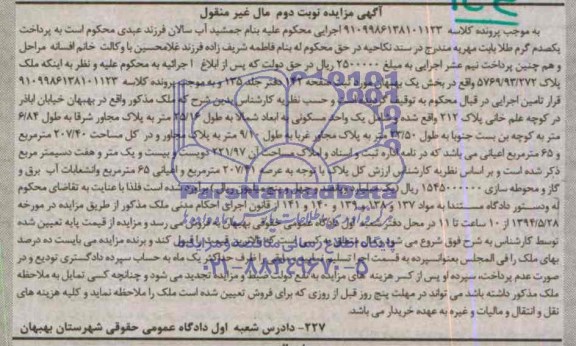 آگهی مزایده نوبت دوم مال غیر منقول
به موجب پرونده کلاسه ۹۱۰۹۹۸۶۱۳۸۱۰۱۱۲۳ اجرایی محکوم علیه بنام جمشید آب سالان فرزند عبدی محکوم است به پرداخت
یکصدم گرم طلا بابت مهریه مندرج در سند نکاحیه در حق محکوم له بنام فاطمه شریف زاده فرزند غلامحسین با وکالت خانم افسانه مراحل
و هم چنین پرداخت نیم عشر اجرایی به مبلغ ۲۵۰۰۰۰۰ ریال در حق دولت که پس از ابلاغ اجرائیه به محکوم علیه و نظر به اینکه ملک
پلاک ۵۷۶۹/۹۳/۲۷۲ واقع در بخش یک بهبهان صفحه ۱۴۲ دفتر جلد ۱۳۵ و به موجب پرونده کلاسه ۹۱۰۹۹۸۶۱۳۸۱۰۱۱۲۳
قرار تامین اجرایی در قبال محکوم به توقیف و حسب نظریه کارشناس بدین شرح که ملک مذکور واقع در بهبهان خیابان اباذر
در کوچه علم خانی پلاک ۲۱۲ واقع شده یک واحد مسکونی به ابعاد شمالا به طول ۲۵/۱۶ متر به پلاک مجاور شرقا به طول ۶/۸۴
متر به کوچه بن بست جنوبا به طول ۲۳/۵۰ متر به پلاک مجاور غربا به طول ۹/۱۰ متر به پلاک مجاور و در کل مساحت ۲۰۷/۴۰ مترمربع
و ۶۵ مترمربع اعیانی می باشد که در نامه اداره ثبت و اسناد و املاک مساحت آن ۲۲۱/۹۷ دویست و بیست و یک متر و هفت دسیمتر مربع
ذکر شده است و بر اساس نظریه کارشناس ارزش کل پلاک با توجه به عرصه ۲۰۷/۴۱ مترمربع و اعیانی ۶۵ مترمربع وانشعابات آب برق و
گاز و محوطه سازی ۱۵۴۵۰۰۰۰۰۰ ریال شده است فلذا با عنایت به تقاضای محکوم
له ودستور دادگاه مستندا به مواد ۱۳۷ و ۱۳۸ و ۱۴۰ و ۱۴۱ از قانون اجرای احکام مدنی ملک مذکور از طریق مزایده در مورخه
۱۳۹۴/۵/۲۸ از ۱۰ ساعت تا ۱۱ در محل دفتر شعبه اول دادگاه عمومی حقوقی بهبهان به فروش می رسد و مزایده از قیمت پایه تعیین شده
توسط کارشناس به شرح فوق شروع می شود کند و برنده مزایده می بایست ده درصد
بهای ملک را فی المجلس بعنوانسپرده به قسمت اجرا تسلیم ظرف حداکثر یک ماه به حساب سپرده دادگستری تودیع و در
صورت عدم پرداخت، سپرده او پس از کسر هزینه های مزایده به نفع دولت ضبط و مزایده تجدید می شود و چنانچه کسی تمایل به ملاحظه
ملک مذکور داشته باشد می تواند در مهلت پنج روز قبل از روزی که برای فروش تعیین شده است ملک را ملاحظه نماید و کلیه هزینه های
نقل و انتقال و مالیات و غیره به عهده خریدار می باشد.
۲۲۷- دادرس شعبه اول دادگاه عمومی حقوقی شهرستان بهبهان
ParsNamadData
پایگاه اطلاع رسانی مناقصه و مزایده
۰۲۱-۸۸۳۴۹۶۷۰-۵